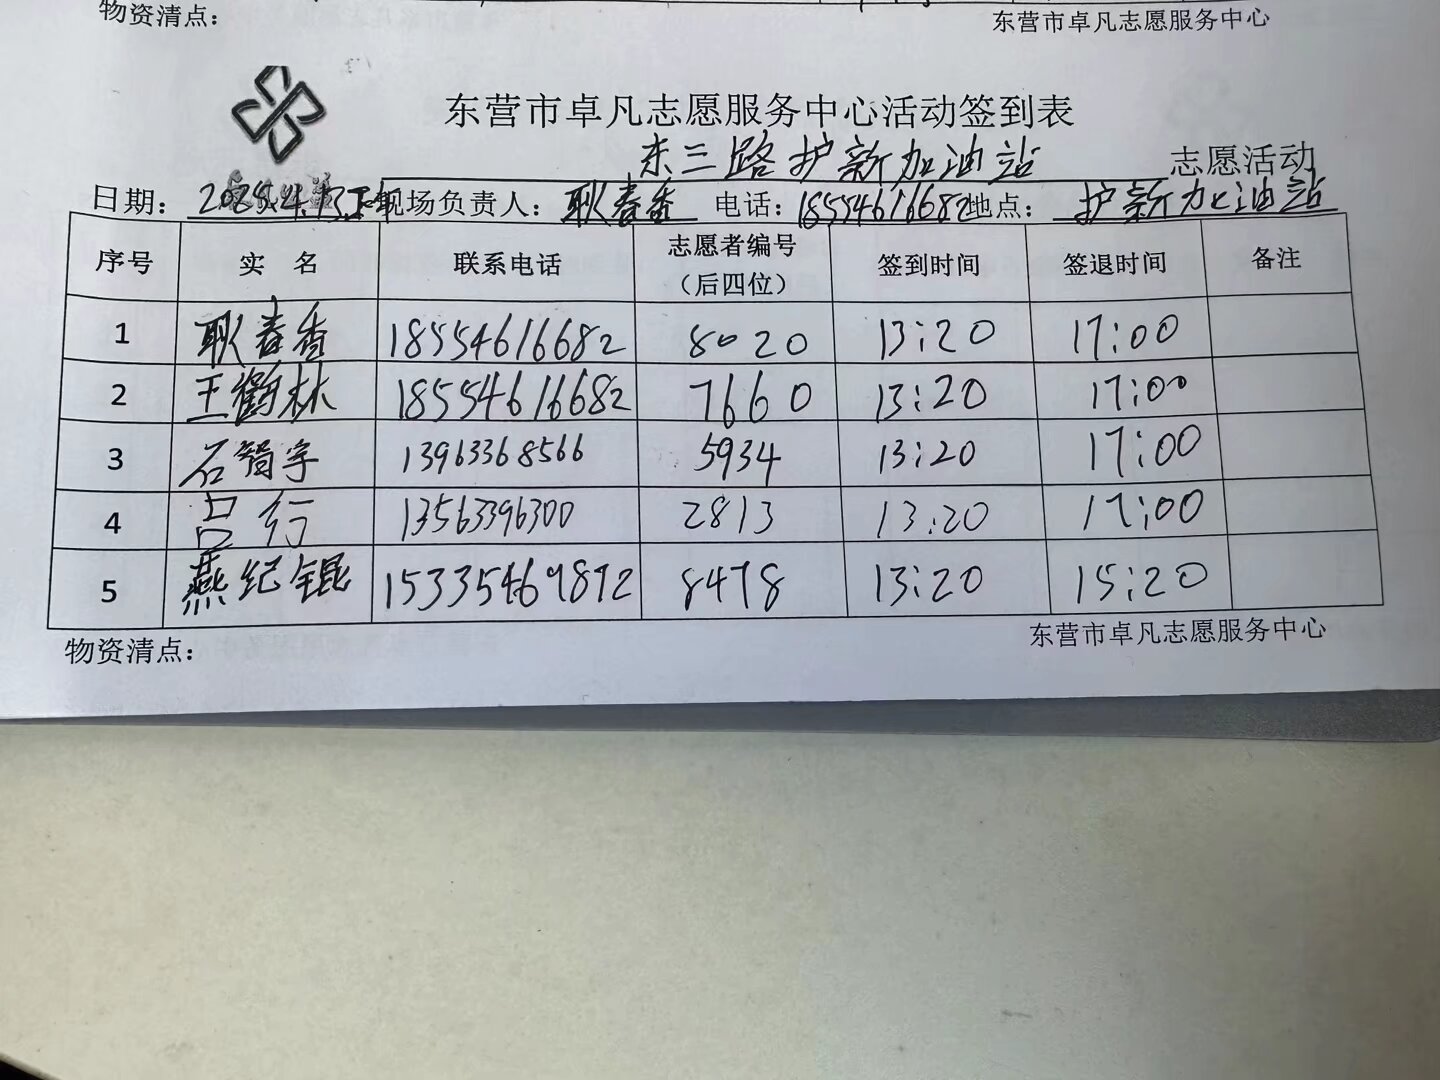 物资清点：
东营市卓凡志愿服务中心
东营市卓凡志愿服务中心活动签到表
东三路护新加油站 志愿活动
日期： 现场负责人：耿春香 电话：18554616682 地点：护新加油站
序号 实 名 联系电话 志愿者编号（后四位） 签到时间 签退时间 备注
1 耿春香 18554616682 8020 13:20 17:00
2 王鹤林 18554616682 7660 13:20 17:00
3 石智宇 13963368566 5934 13:20 17:00
4 吕行 13563396300 2813 13:20 17:00
5 燕纪锟 15335469872 8478 13:20 15:20
物资清点：
东营市卓凡志愿服务中心